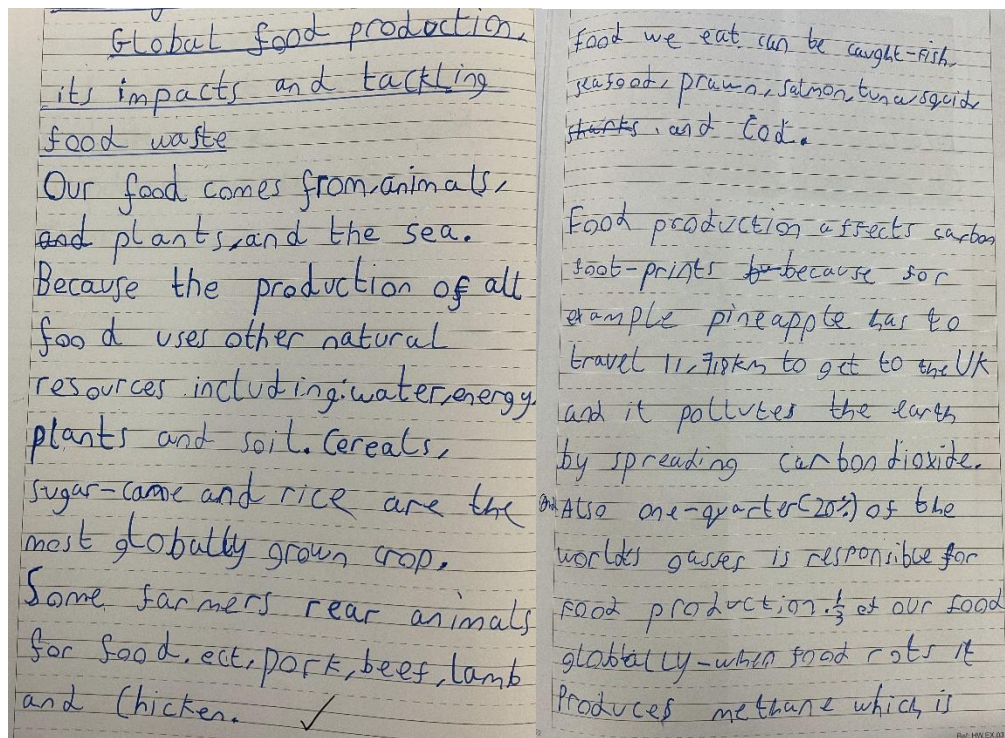 Global food production,
its impacts and tackling
food waste
Our food comes from, animals,
and plants, and the sea.
Because the production of all
food uses other natural
resources including: water, energy,
plants and soil. Cereals,
sugar-cane and rice are the
most globally grown crop.
Some farmers rear animals
for food. ect, pork, beef, lamb
and Chicken.
food we eat can be caught-fish,
seafood, prawn, salmon, tuna, squid
sharks, and Cod.
Food production affects carbon
foot-prints because for
example pineapple has to
travel km to get to the UK
and it pollutes the earth
by spreading carbon dioxide.
and Also one-quarter (20%) of the
worlds gasses is responsible for
Food production. 1/3 of our food
globally-when food rots it
Produces methane which is